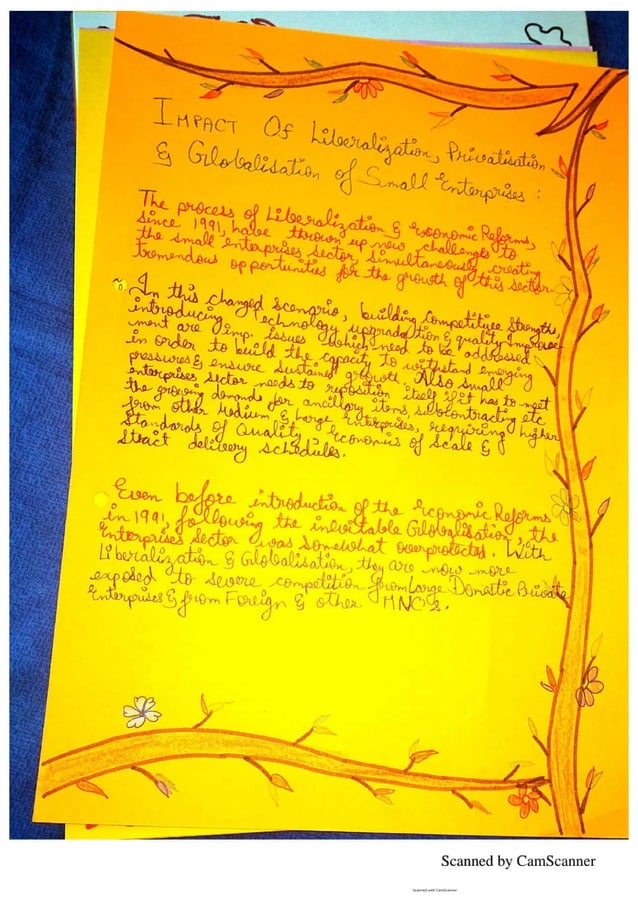 IMPACT Of Liberalization, Privatisation
& Globalisation of Small Enterprises :
The process of Liberalization & Economic Reforms,
since 1991, have thrown up new challenges to
the small enterprises sector, simultaneously creating
tremendous opportunities for the growth of this sector.
In this changed scenario, building Competitive Strengths,
introducing Technology upgradation & quality improve-
ment are imp. issues which need to be addressed
in order to build the capacity to withstand emerging
pressures & ensure sustained growth. Also small
enterprises sector needs to reposition itself if it has to meet
the growing demands for ancillary items, subcontracting etc
from other Medium & Large Enterprises, requiring higher
Standards of Quality, Economics of Scale &
Strict delivery schedules.
Even before introduction of the Economic Reforms
in 1991 following the inevitable Globalisation, the
Enterprises Sector was somewhat overprotected. With
Liberalization & Globalisation, they are now more
exposed to severe competition from Large Domestic Private
Enterprises & from Foreign & other MNC's.
Scanned by CamScanner
Scanned with CamScanner